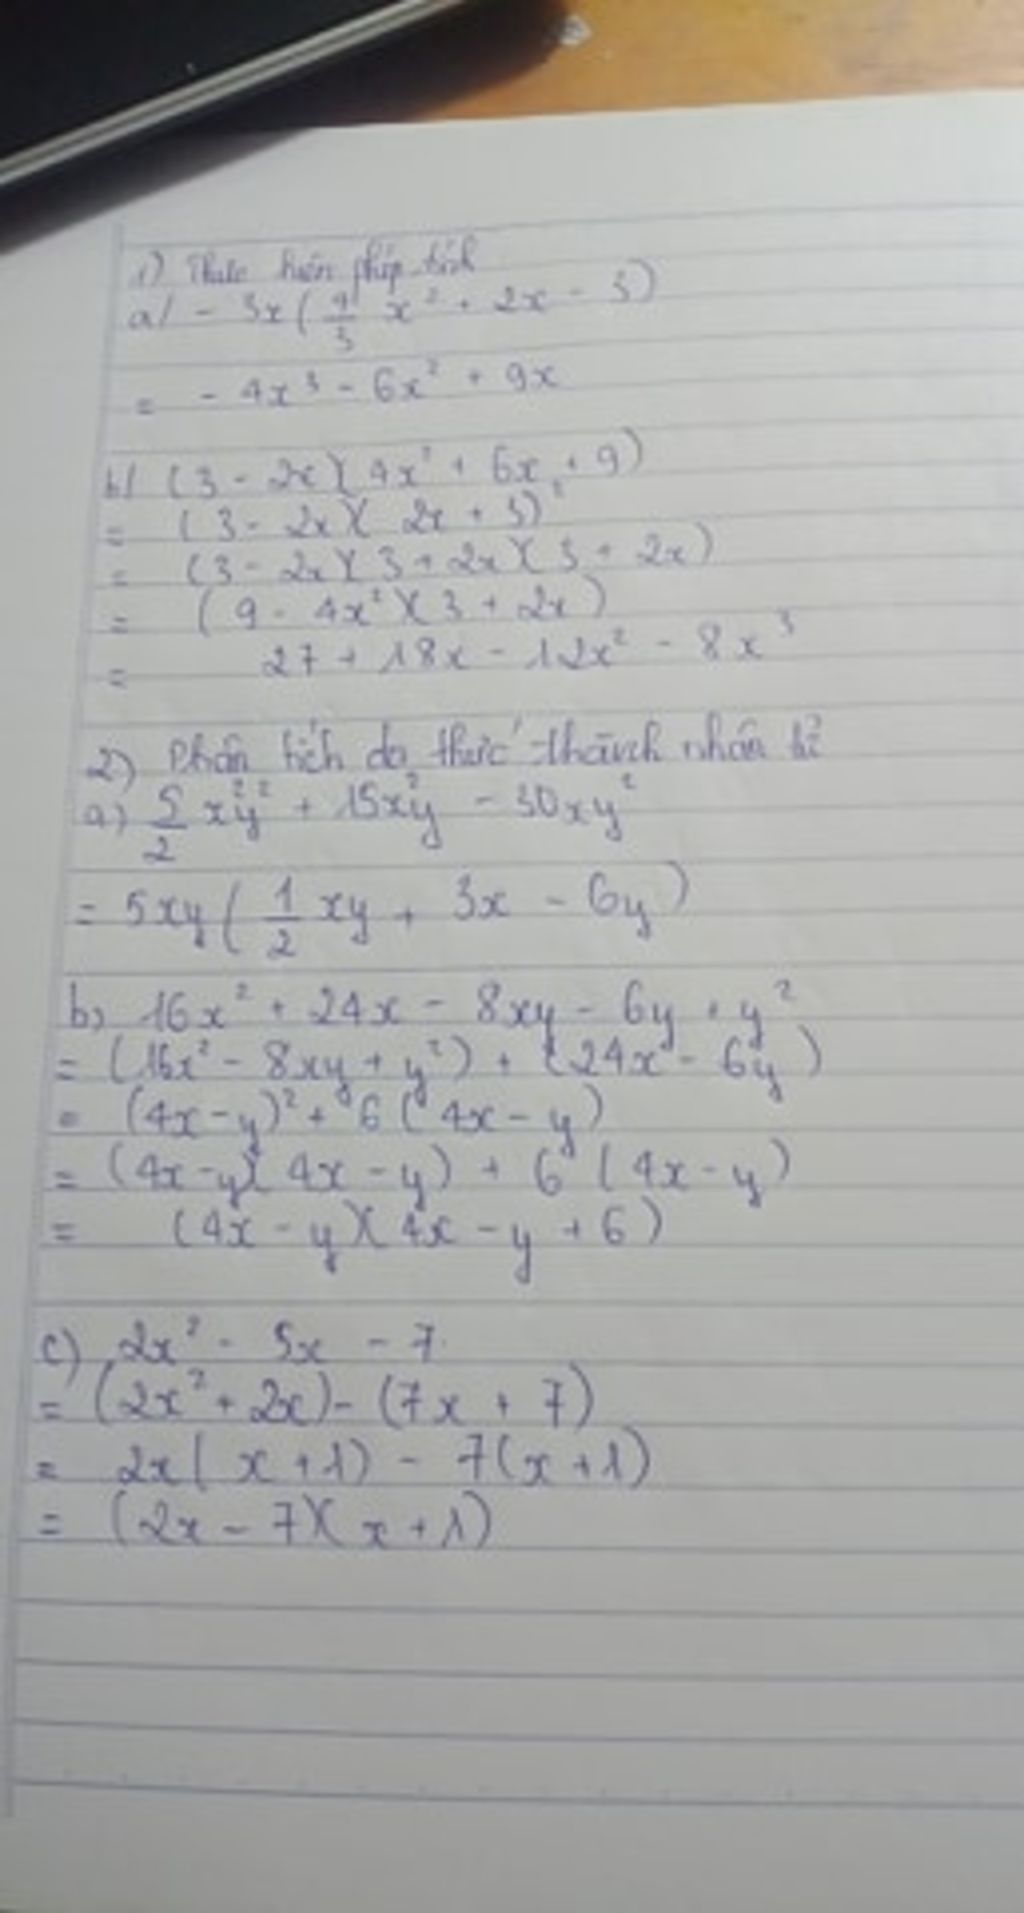 1) Thực hiện phép tính
a/ - 3x ( 4/3 x² + 2x - 3 )
= - 4x³ - 6x² + 9x
b/ (3 - 2x)(4x² + 6x + 9)
= (3 - 2x)(2x + 3)²
= (3 - 2x)(3 + 2x)(3 + 2x)
= (9 - 4x²)(3 + 2x)
= 27 + 18x - 12x² - 8x³
2) Phân tích đa thức thành nhân tử
a) 5/2 x²y² + 15x²y - 30xy²
= 5xy ( 1/2 xy + 3x - 6y )
b) 16x² + 24x - 8xy - 6y + y²
= (16x² - 8xy + y²) + (24x - 6y)
= (4x - y)² + 6 (4x - y)
= (4x - y)(4x - y) + 6 (4x - y)
= (4x - y)(4x - y + 6)
c) 2x² - 5x - 7
= (2x² + 2x) - (7x + 7)
= 2x( x + 1) - 7(x + 1)
= (2x - 7)(x + 1)